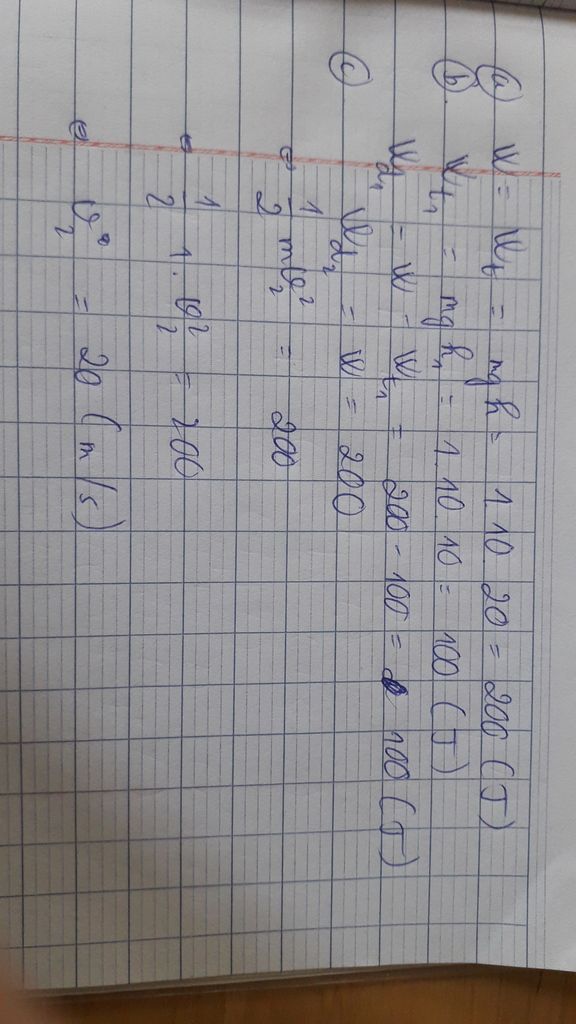 ⓐ W = Wt = mgh = 1.10.20 = 200 (J)
ⓑ Wt₁ = mgh₁ = 1.10.10 = 100 (J)
Wđ₁ = W - Wt₁ = 200 - 100 = 100 (J)
ⓒ Wđ₂ = W = 200
⇔ 1/2 mv₂² = 200
⇔ 1/2 1.v₂² = 200
⇔ v₂ = 20 (m/s)